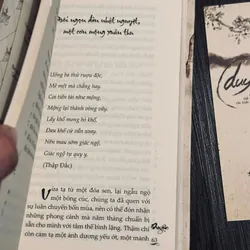 Đời ngọn đèn nhật nguyệt,
một cơn mộng xuân thu
Uống ba thứ rượu độc.
Mê mệt mà chẳng hay.
Coi tiền tài như mộng,
Mộng lại thành vòng vây.
Lấy khổ mong bỏ khổ,
Đau khổ cứ cắn xoay.
Nên mau sớm giác ngộ,
Giác ngộ tự quy y.
(Thập Đắc)
Vừa tạ từ một đóa sen, lại ngẫu ngộ
một bông cúc, chúng ta đã quen với
sự luân chuyển bốn mùa, nên có thể đón nhận
những phong cảnh mà năm tháng chuẩn bị
sẵn cho mình với tâm thế bình lặng. Thậm chí
còn cảm tạ một ánh dương yếu ớt, một mảnh
Duyên